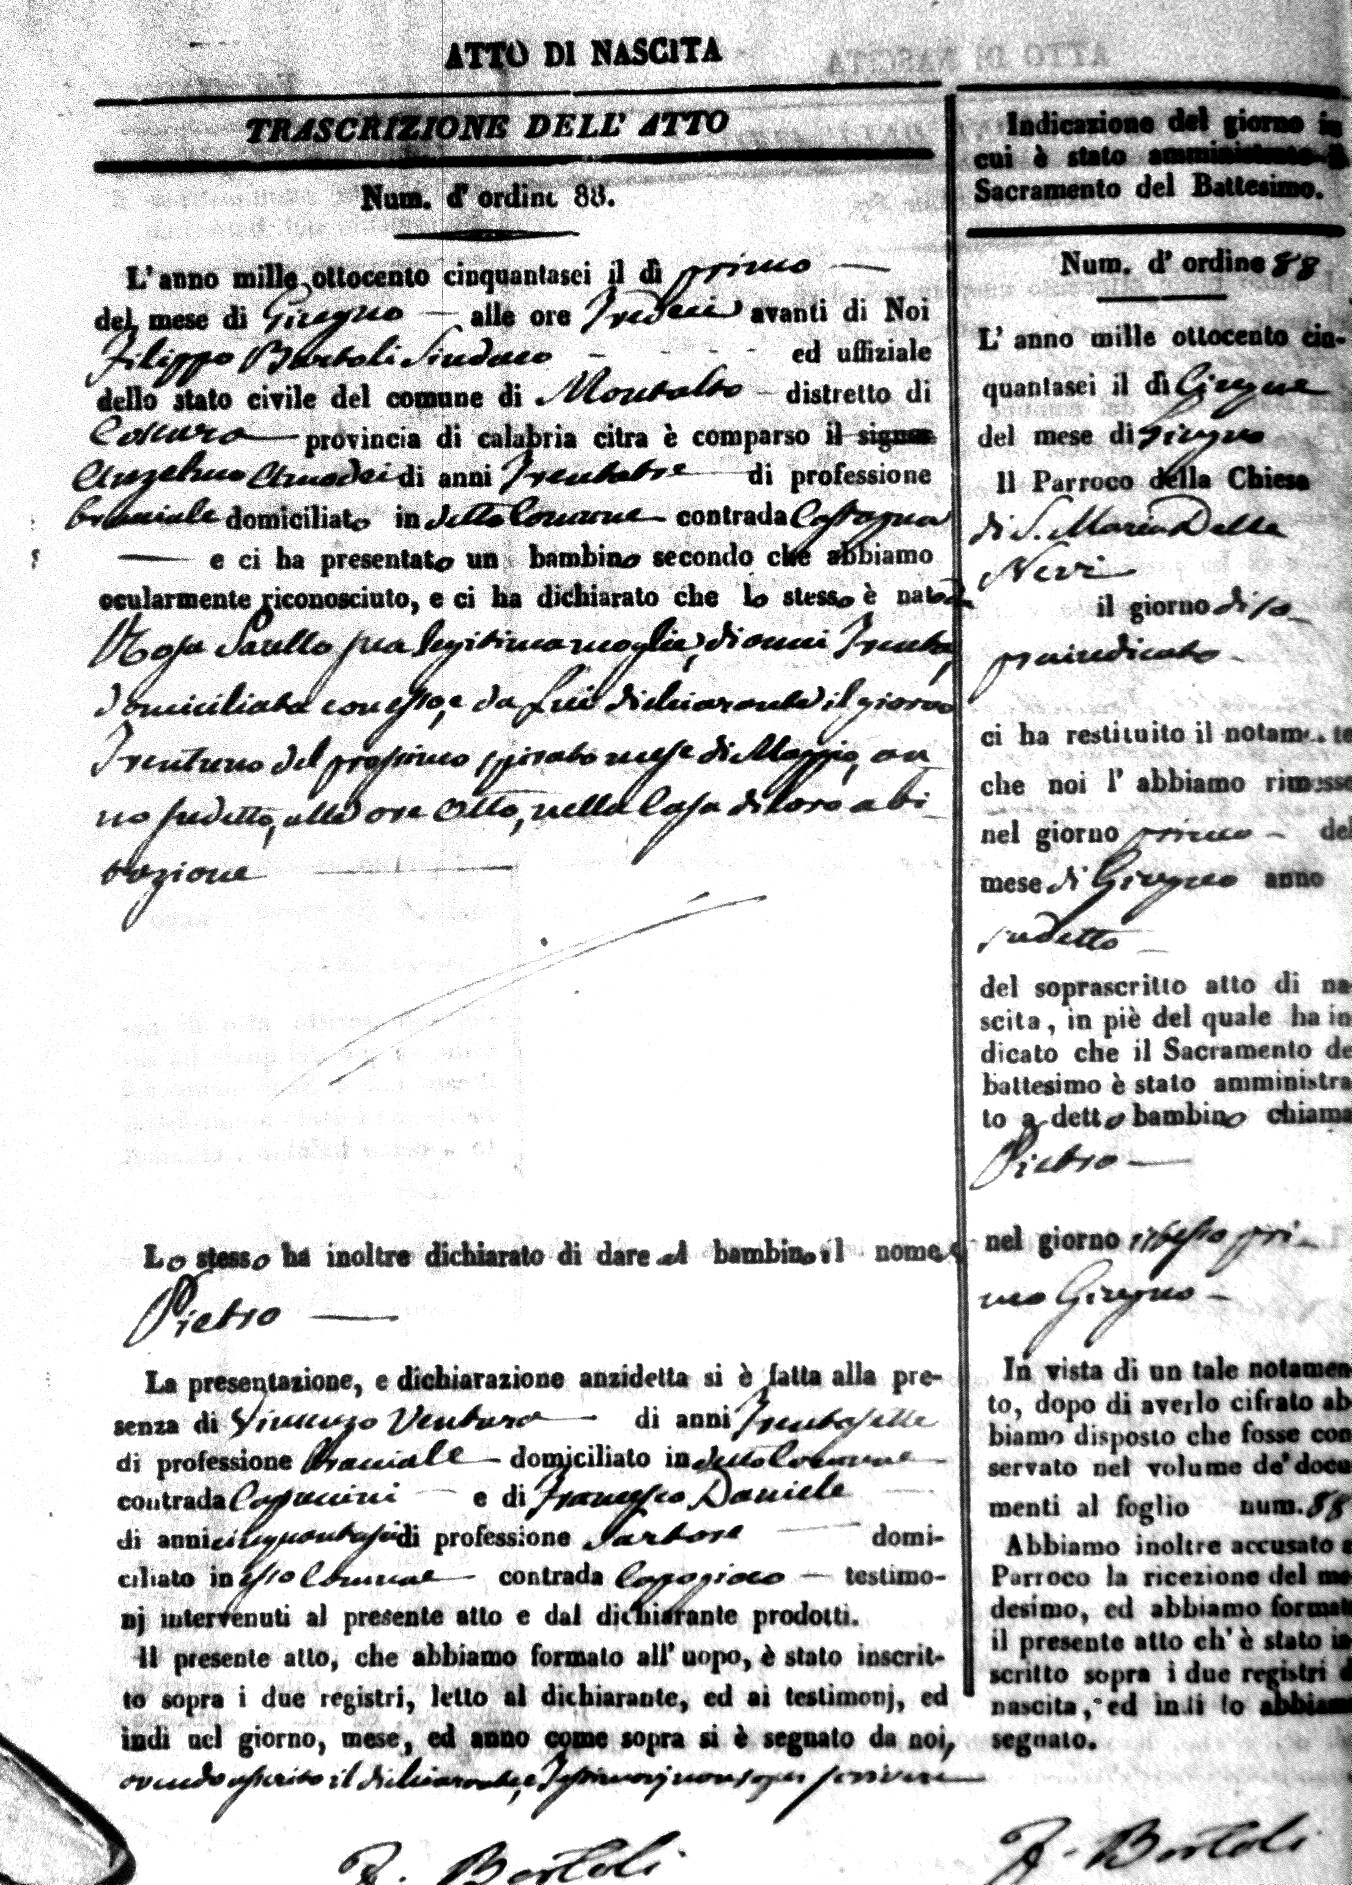 ATTO DI NASCITA
TRASCRIZIONE DELL' ATTO
Num. d' ordine 88.
L'anno mille ottocento cinquantasei il dì primo
del mese di Giugno alle ore Tredeci avanti di Noi
Filippo Bartoli Sindaco ed uffiziale
dello stato civile del comune di Montalto distretto di
Cosenza provincia di calabria citra è comparso il signor
Anzelmo Amodei di anni Trentatre di professione
braciale domiciliato in detto Comune contrada Castagna
e ci ha presentato un bambino secondo che abbiamo
ocularmente riconosciuto, e ci ha dichiarato che lo stesso è nato da
Rosa sua legitima moglie, di anni Trenta,
domiciliata con esso, e da Lui dichiarante il giorno
Trentuno del prossimo spirato mese di Maggio, an
no sudetto, alle ore Otto, nella Casa di loro abi
tazione
Lo stesso ha inoltre dichiarato di dare al bambino il nome di
Pietro
La presentazione, e dichiarazione anzidetta si è fatta alla pre-
senza di Vincenzo Ventura di anni Trentasette
di professione Braciale domiciliato in detto Comune
contrada Capuccini e di Francesco Daniele
di anni cinquantasei di professione Sartore domi-
ciliato in esso Comune contrada testimo-
nj intervenuti al presente atto e dal dichiarante prodotti.
Il presente atto, che abbiamo formato all' uopo, è stato inscrit-
to sopra i due registri, letto al dichiarante, ed ai testimonj, ed
indi nel giorno, mese, ed anno come sopra si è segnato da noi,
avendo asserito il dichiarante, e Testimonj non saper scrivere
F. Bartoli
Indicazione del giorno in
cui è stato amministrato il
Sacramento del Battesimo.
Num. d' ordine 88
L' anno mille ottocento cin-
quantasei il dì Cinque
del mese di Giugno
Il Parroco della Chiesa
di S. Maria Della
Nevi
il giorno di so-
praindicato
ci ha restituito il notamento
che noi l' abbiamo rimesso
nel giorno primo del
mese di Giugno anno
sudetto
del soprascritto atto di na
scita, in piè del quale ha in
dicato che il Sacramento de
battesimo è stato amministra
to a detto bambino chiama
Pietro
nel giorno istesso pri-
mo Giugno
In vista di un tale notamen
to, dopo di averlo cifrato ab
biamo disposto che fosse con
servato nel volume de' docu
menti al foglio num. 88
Abbiamo inoltre accusato a
Parroco la ricezione del me
desimo, ed abbiamo format
il presente atto ch' è stato in
scritto sopra i due registri d
nascita, ed indi lo abbiamo
segnato.
F. Bartoli